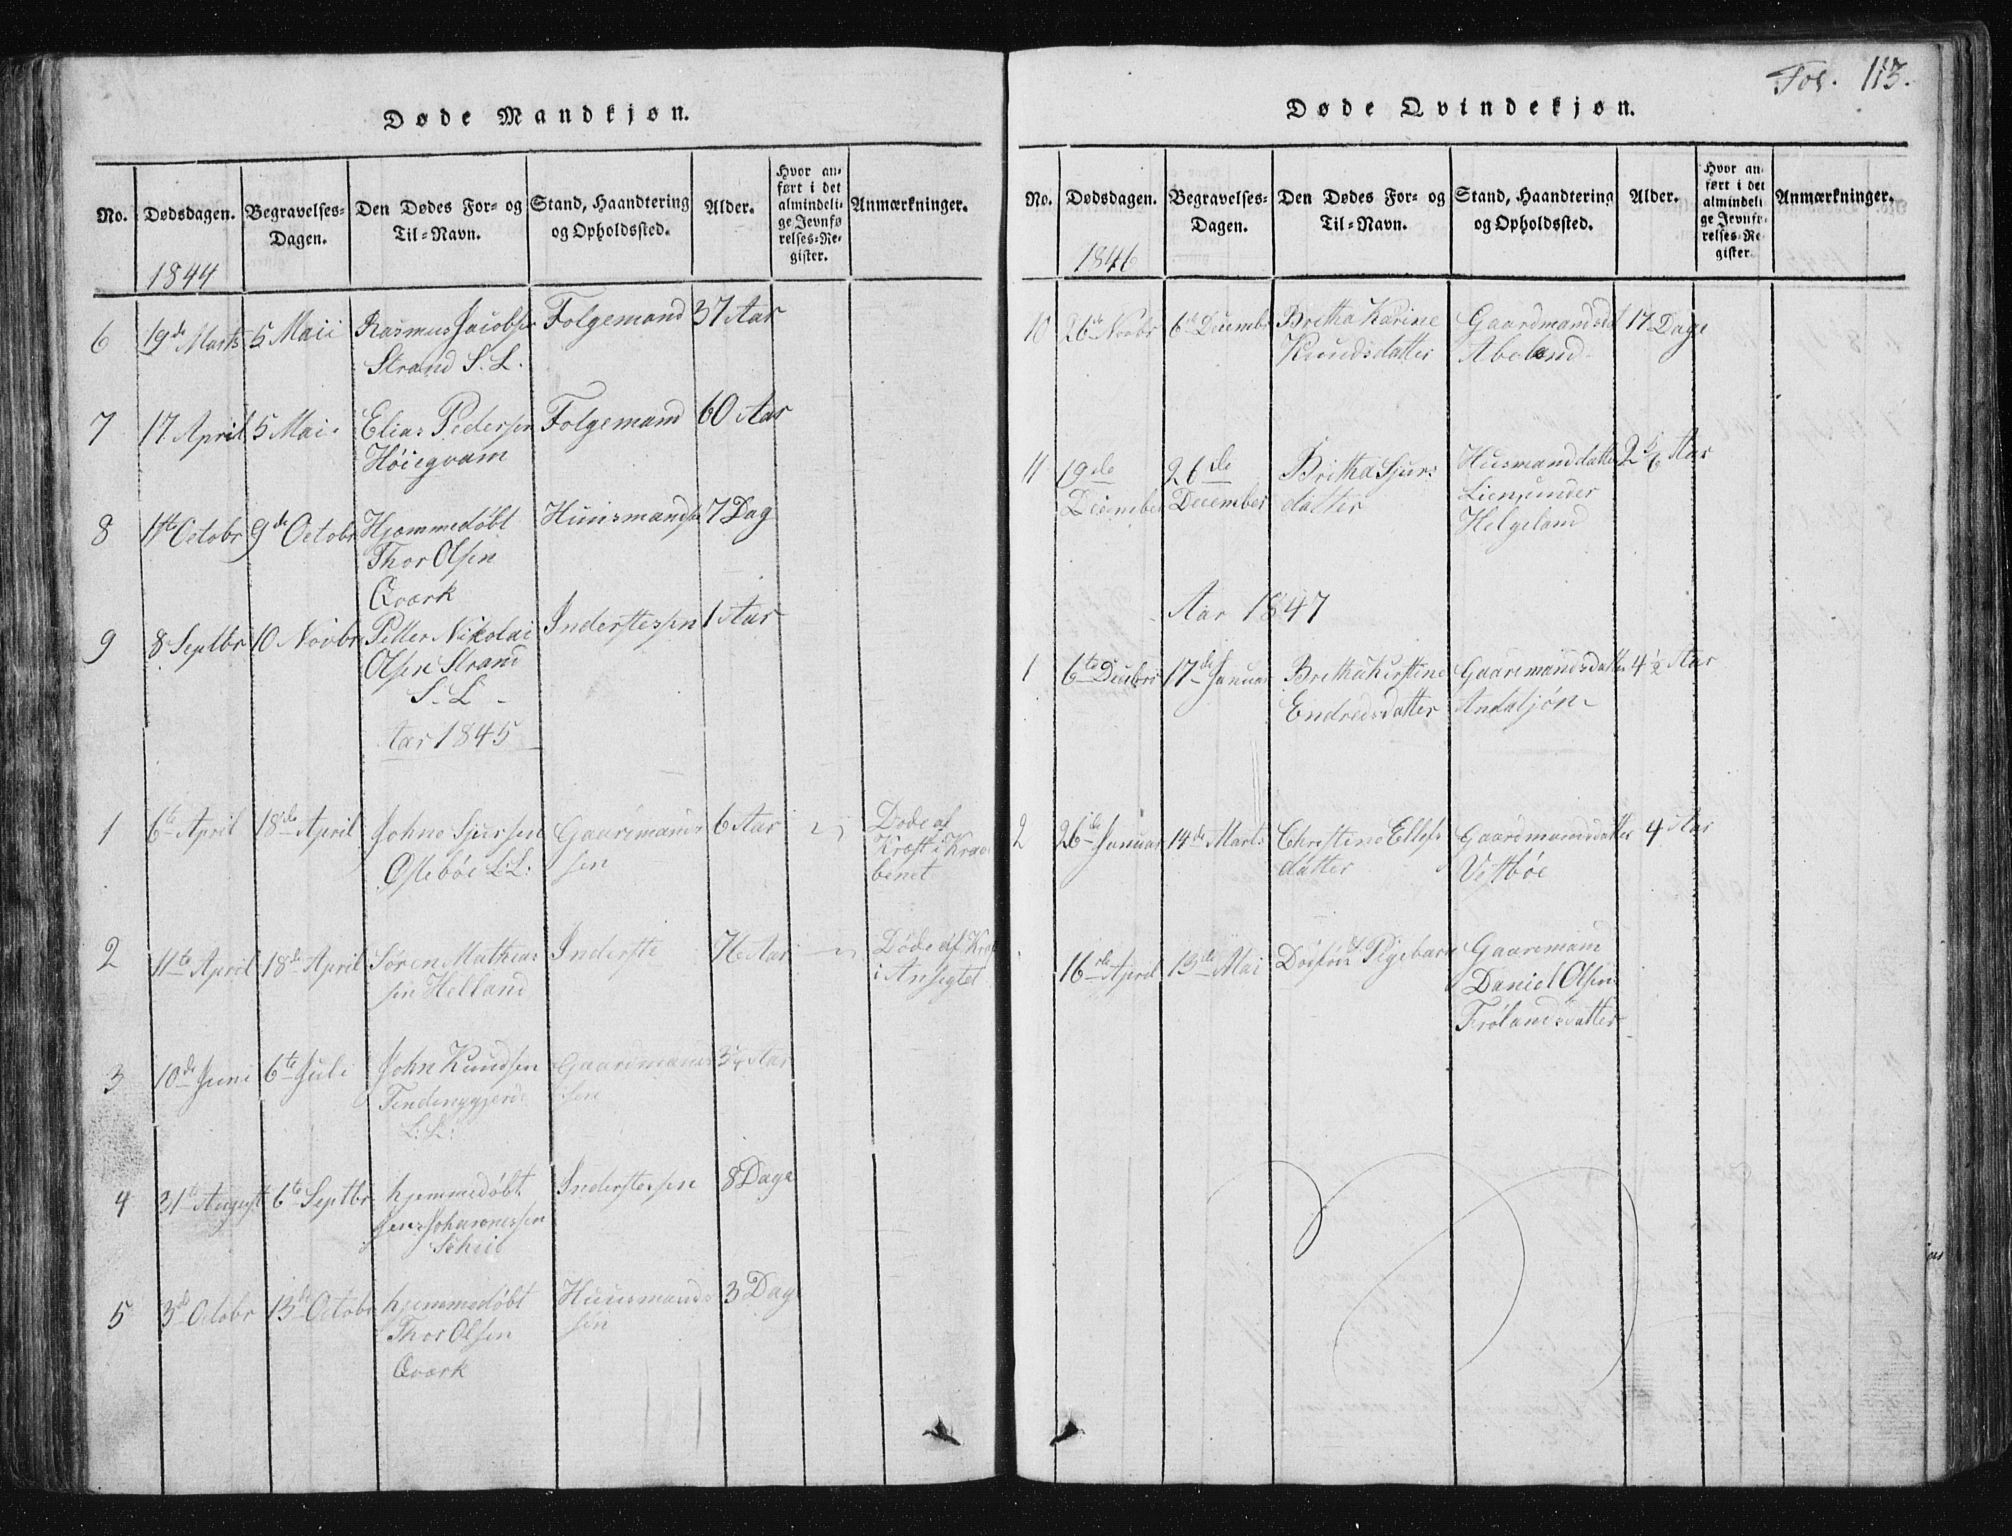 Døde Mandkjøn.
No. Dødsdagen. Begravelses-Dagen. Den Dødes For- og Til-Navn. Stand, Haandtering og Opholdssted. Alder. Hvor anført i det almindelige Jevnførelses-Register. Anmærkninger.
1844
6 19de Marts 5 Maii Rasmus Jacobsen Folgemand 37 Aar
Strand S. L.
7 17 April 5 Mai Elias Pedersen Folgemand 60 Aar
Høiegvam
8 1ste Octobr 9de Octobr Hjemmedøbt Huusmandss 7 Dag
Thor Olsen
Qværk
9 8 Septbr 10 Novbr Petter Nikolai Inderstessøn 1 Aar
Olsen Strand
S. L.
Aar 1845
1 6te April 18de April Johne Sjursen Gaardmands 6 Aar Døde af
Ostebøe L. L. søn Kræft i
benet
2 11te April 18de April Søren Mathias Inderste 76 Aar Døde af
sen Helland i Ansigtet
3 10de Juni 6te Juli John Knudsen Gaardmands Aar
L. L. søn
4 31te August 6te Septbr hjemmedøbt Inderstessøn 8 Dage
Jens Johannessen
5 3de Octobr 13de Octobr hjemmedøbt Huusmands 3 Dage
Thor Olsen søn
Qværk
Fol. 113.
Døde Qvindekjøn.
No. Dødsdagen. Begravelses-Dagen. Den Dødes For- og Til-Navn. Stand, Haandtering og Opholdssted. Alder. Hvor anført i det almindelige Jevnførelses-Register. Anmærkninger.
1846
10 26de Novbr 6te Decembr Britha Karine Gaardmandsd 17 Dage
Knudsdatter Abeland
11 19de 26de Britha Sjurs Husmanddatter Aar
December December datter Lien under
Helgeland
Aar 1847
1 6te Decbr 17de Januar Britha Kirstine Gaardmandsdatter 4½ Aar
Endredsdatter
2 26de Januar 14de Marts Christine Ellefs Gaardmandsdatter 4 Aar
datter Vestbøe
16de April 13de Mai Dødfødt Pigebarn Gaardmand
Daniel Olsen
Frølandsdatter